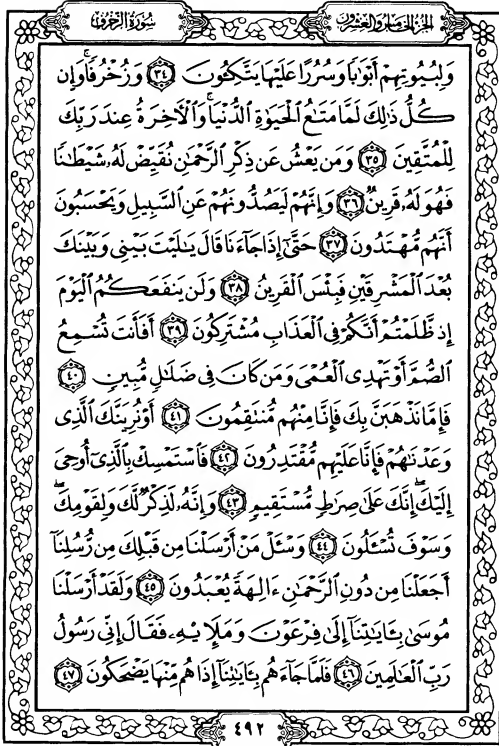 سُورَةُ الزُّخْرُفِ
الجُزْءُ الخَامِسُ وَالعِشْرُونَ
وَلِبُيُوتِهِمْ أَبْوَٰبًا وَسُرُرًا عَلَيْهَا يَتَّكِـُٔونَ ﴿٣٤﴾ وَزُخْرُفًا ۚ وَإِن
كُلُّ ذَٰلِكَ لَمَّا مَتَـٰعُ ٱلْحَيَوٰةِ ٱلدُّنْيَا ۚ وَٱلْـَٔاخِرَةُ عِندَ رَبِّكَ
لِلْمُتَّقِينَ ﴿٣٥﴾ وَمَن يَعْشُ عَن ذِكْرِ ٱلرَّحْمَـٰنِ نُقَيِّضْ لَهُۥ شَيْطَـٰنًا
فَهُوَ لَهُۥ قَرِينٌ ﴿٣٦﴾ وَإِنَّهُمْ لَيَصُدُّونَهُمْ عَنِ ٱلسَّبِيلِ وَيَحْسَبُونَ
أَنَّهُم مُّهْتَدُونَ ﴿٣٧﴾ حَتَّىٰٓ إِذَا جَآءَنَا قَالَ يَـٰلَيْتَ بَيْنِى وَبَيْنَكَ
بُعْدَ ٱلْمَشْرِقَيْنِ فَبِئْسَ ٱلْقَرِينُ ﴿٣٨﴾ وَلَن يَنفَعَكُمُ ٱلْيَوْمَ
إِذ ظَّلَمْتُمْ أَنَّكُمْ فِى ٱلْعَذَابِ مُشْتَرِكُونَ ﴿٣٩﴾ أَفَأَنتَ تُسْمِعُ
ٱلصُّمَّ أَوْ تَهْدِى ٱلْعُمْىَ وَمَن كَانَ فِى ضَلَـٰلٍ مُّبِينٍ ﴿٤٠﴾
فَإِمَّا نَذْهَبَنَّ بِكَ فَإِنَّا مِنْهُم مُّنتَقِمُونَ ﴿٤١﴾ أَوْ نُرِيَنَّكَ ٱلَّذِى
وَعَدْنَـٰهُمْ فَإِنَّا عَلَيْهِم مُّقْتَدِرُونَ ﴿٤٢﴾ فَٱسْتَمْسِكْ بِٱلَّذِىٓ أُوحِىَ
إِلَيْكَ ۖ إِنَّكَ عَلَىٰ صِرَٰطٍ مُّسْتَقِيمٍ ﴿٤٣﴾ وَإِنَّهُۥ لَذِكْرٌ لَّكَ وَلِقَوْمِكَ ۖ
وَسَوْفَ تُسْـَٔلُونَ ﴿٤٤﴾ وَسْـَٔلْ مَنْ أَرْسَلْنَا مِن قَبْلِكَ مِن رُّسُلِنَآ
أَجَعَلْنَا مِن دُونِ ٱلرَّحْمَـٰنِ ءَالِهَةً يُعْبَدُونَ ﴿٤٥﴾ وَلَقَدْ أَرْسَلْنَا
مُوسَىٰ بِـَٔايَـٰتِنَآ إِلَىٰ فِرْعَوْنَ وَمَلَإِي۟هِۦ فَقَالَ إِنِّى رَسُولُ
رَبِّ ٱلْعَـٰلَمِينَ ﴿٤٦﴾ فَلَمَّا جَآءَهُم بِـَٔايَـٰتِنَآ إِذَا هُم مِّنْهَا يَضْحَكُونَ ﴿٤٧﴾
٤٩٢